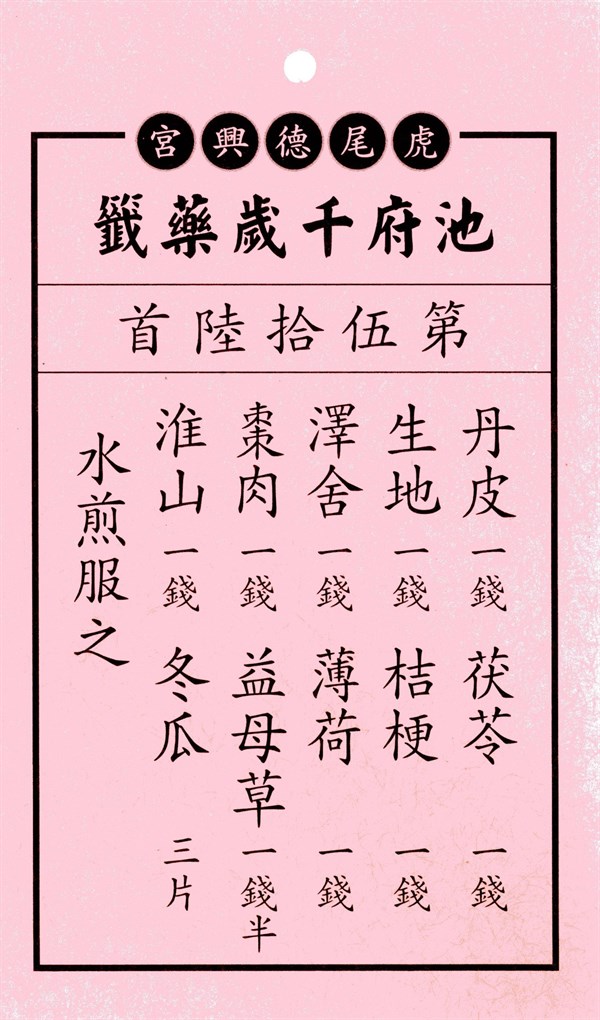 虎尾德興宮
池府千歲藥籤
第伍拾陸首
丹皮一錢 茯苓一錢
生地一錢 桔梗一錢
澤舍一錢 薄荷一錢
棗肉一錢 益母草一錢半
淮山一錢 冬瓜三片
水煎服之